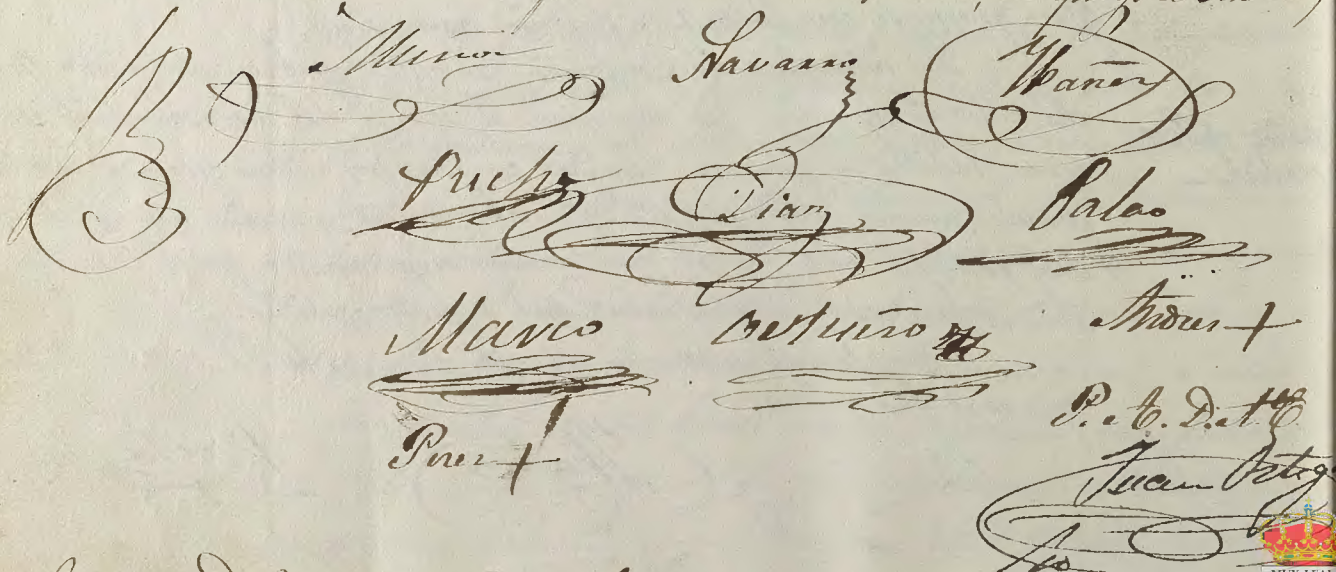 Muñoz Navarro Ybañez
Puche Diaz Palao
Marco Ortuño Andres +
Perez +
P. A. D. A.
Juan Ortega
MUY LEAL